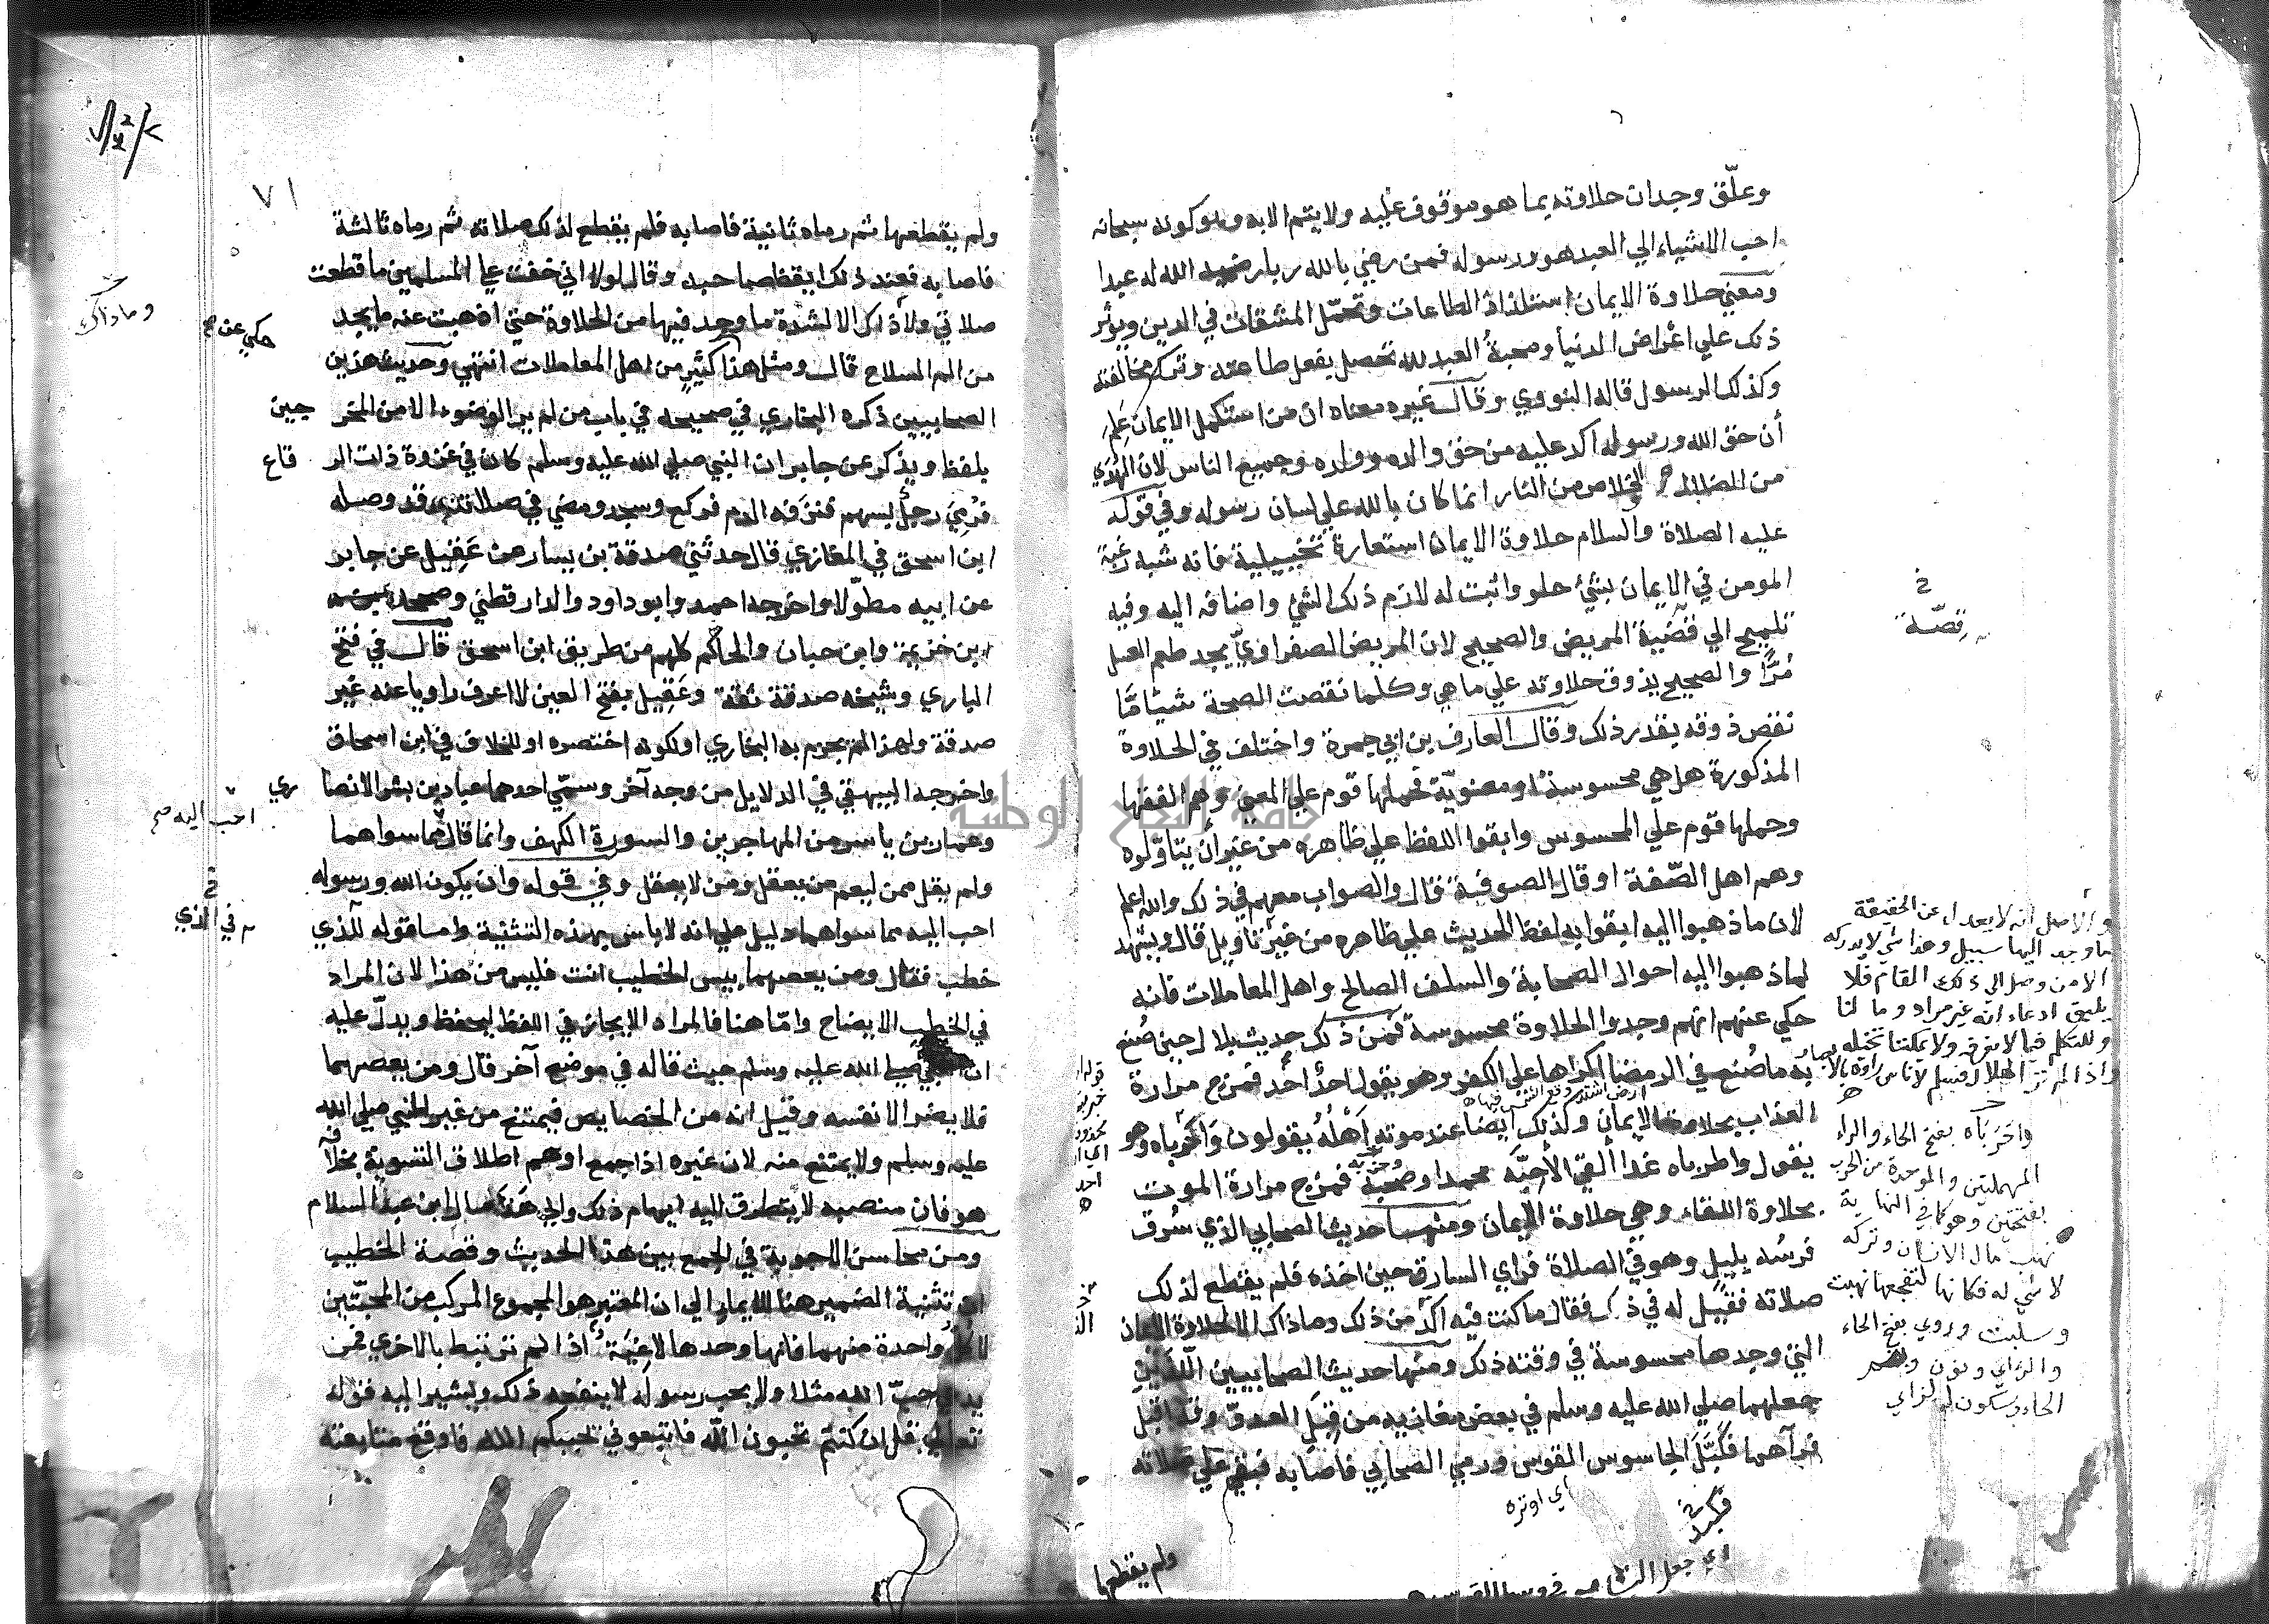 وعلّق وجدان حلاوته بما هو موقوف عليه ولا يتم الا به وهو كونه سبحانه
احب الاشياء الي العبد هو ورسوله فمن رضي بالله ربا رضيه الله له عبدا
ومعني حلاوة الايمان استلذاذ الطاعات وتحمّل المشقات في الدين ويؤثر
ذلك علي اعراض الدنيا ومحبة العبد لله تحصل بفعل طاعته وترك مخالفته
وكذلك الرسول قاله النووي وقال غيره معناه ان من استكمل الايمان عَلِمَ
أن حق الله ورسوله اكد عليه من حق والده وولده وجميع الناس لان الهُدَي
من الضلال و الخلاص من النار انما كان بالله علي لسان رسوله وفي قوله
عليه الصلاة والسلام حلاوة الايمان استعارة تخييلية فانه شبه رغبة
المومن في الايمان بشئ حلو واثبت له لازم ذلك الشئ واضافه اليه وفيه
تلميح الي قضية المريض والصحيح لان المريض الصفراويّ يجد طعم العسل
مُرًّا والصحيح يذوق حلاوته علي ما هي وكلما نقصت الصحة شيئا مَّا
نقص ذوقه بقدر ذلك وقال العارف بن ابي جمرة واختلف في الحلاوة
المذكورة هل هي محسوسة او معنويّة فحملها قوم علي المعني وهم الفقها
وحملها قوم علي المحسوس وابقوا اللفظ علي ظاهره من غير أن يتاوّلوه
وهم اهل الصّفة او قال الصوفية قال والصواب معهم في ذلك والله اعلم
لان ما ذهبوا اليه ابقوا به لفظ الحديث علي ظاهره من غير تاويل قال ويشهد
لما ذهبوا اليه احوال الصحابة والسلف الصالح واهل المعاملات فانه
حكي عنهم انهم وجدوا الحلاوة محسوسة فمن ذلك حديث بلال حين صُنع
به ما صُنع في الرمضا اكراها علي الكفر وهو يقول احدٌ أحَد فمزج مرارة
العذاب بحلاوة الايمان وكذلك ايضا عند موته أَهْلُهُ يقولون وَاكَرْباه وهو
يقول واطرباه غدا ألقي الأحبّه محمدا وصحبه فمزج مرارة الموت
بحلاوة اللقاء وهي حلاوة الايمان ومنها حديث الصحابي الذي سُرق
فرسُه بليل وهو في الصلاة فراي السارق حين اخذه فلم يقطع لذلك
صلاته فقيل له في ذلك فقال ما كنت فيه اكد من ذلك وما ذاك الا للحلاوة
التي وجدها محسوسة في وقته ذلك ومنها حديث الصحابيين اللّذَيْنِ
جعلهما صلي الله عليه وسلم في بعض مغازيه من قِبَلِ العدوّ وقد اقبل
فرآهما فكبّل الجاسوس القوس ورمي الصحابي فاصابه فبقي علي صلاته
اي اوتره
ولم يقطعها
خ
قصّة
والأصل انه لا يعدل عن الحقيقة
ما وجد اليها سبيل وهذا شي لا يدركه
الا من وصل الي ذلك المقام فلا
يليق ادعاء انه غير مراد وما لنا
وللتكلم فيما لا نعرفه ولا يمكننا تخيله
واذا لم تر الهلال فسلم لاناس راوه بالابصار
واحَرَباه بفتح الحاء والراء
المهملتين والموحدة من الحرب
بفتحتين وهو كما في النهاية
نهب مال الانسان وتركه
لا شي له فكانها لتفجعها نهبت
وسلبت وروي بفتح الحاء
والزاي ونون وبضم
الحاء وسكون الزاي
٧١
ولم يقطعها ثم رماه ثانية فاصابه فلم يقطع لذلك صلاته ثم رماه ثالثة
فاصابه فعند ذلك ايقظ صاحبه وقال لولا اني خفت علي المسلمين ما قطعت
صلاتي ولا ذلك الا لشدة ما وجد فيها من الحلاوة حتي اذهبت عنه ما يجد
من الم السلاح قال ومثل هذا كثير من اهل المعاملات انتهي وحديث هذين
الصحابيين ذكره البخاري في صحيحه في باب من لم ير الوضوء الا من المخرجين
بلفظ ويذكر عن جابر ان النبي صلي الله عليه وسلم كان في غزوة ذات الرقاع
فرُمِيَ رجلٌ بسهم فنزفه الدم فركع وسجد ومضي في صلاته وقد وصله
ابن اسحق في المغازي قال حدثني صدقة بن يسار عن عَقِيل عن جابر
عن ابيه مطوّلا واخرجه احمد وابو داود والدارقطني وصححه
ابن خزيمة وابن حبان والحاكم كلهم من طريق ابن اسحق قال في فتح
الباري وشيخه صدقة ثقة وعَقِيل بفتح العين لا اعرف راويا عنه غير
صدقة ولهذا لم يجزم به البخاري او لكونه اختصره او للخلاف في ابن اسحاق
واخرجه البيهقي في الدلايل من وجه آخر وسمّي احدهما عباد بن بشر الانصاري
وعمار بن ياسر من المهاجرين والسورة الكهف وانما قال مما سواهما
ولم يقل ممن ليعم من يعقل ومن لا يعقل وفي قوله وان يكون الله ورسوله
احب اليه مما سواهما دليل علي انه لا باس بهذه التثنية واما قوله للذي
خطب فقال ومن يعصهما بيس الخطيب انت فليس من هذا لان المراد
في الخطب الايضاح وامّا هنا فالمراد الايجاز في اللفظ ليحفظ ويدلّ عليه
ان النبي صلي الله عليه وسلم حيث قاله في موضع آخر قال ومن يعصهما
فلا يضر الا نفسه وقيل انه من الخصايص فيمتنع من غير النبي صلي الله
عليه وسلم ولا يمتنع منه لان غيره اذا جمع اوهم اطلاق التسوية بخلافه
هو فان منصبه لا يتطرق اليه ايهام ذلك والي هذا مال ابن عبد السلام
ومن محاسن الاجوبة في الجمع بين هذا الحديث وقصة الخطيب
ان تثنية الضمير هنا للايماء الي ان المعتبر هو المجموع المركب من المحبّتين
لا كل واحدة منهما فانها وحدها لاغِيَة اذا لم ترتبط بالاخري فمن
يدعي حبّ الله مثلا ولا يحب رسوله لا ينفعه ذلك ويشير اليه قوله
تعالي قل ان كنتم تحبون الله فاتبعوني يحببكم الله فاوقع متابعته
وما ذاك
حكي عن صح
احب اليه صح
خ
في الذي
جامعة النجاح الوطنية